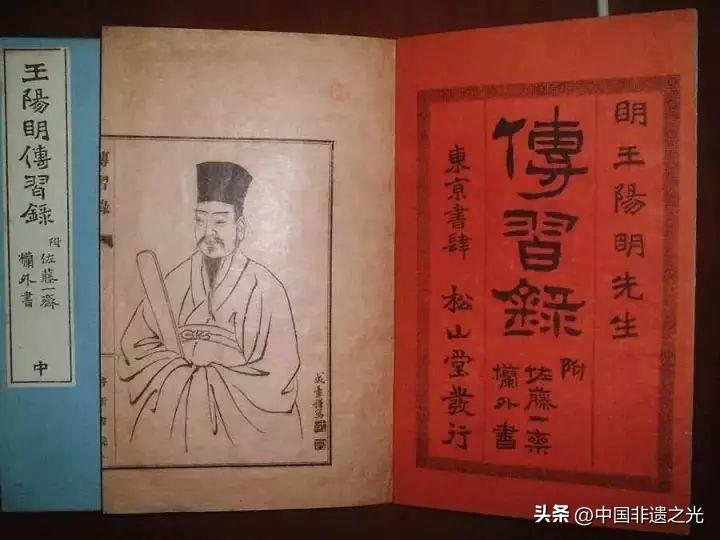 王陽明傳習錄
附
佐藤一齋
欄外書
中
傳習錄
明王陽明先生
傳習錄
附
佐藤一齋
欄外書
東京書肆 松山堂發行
头条 @中国非遗之光